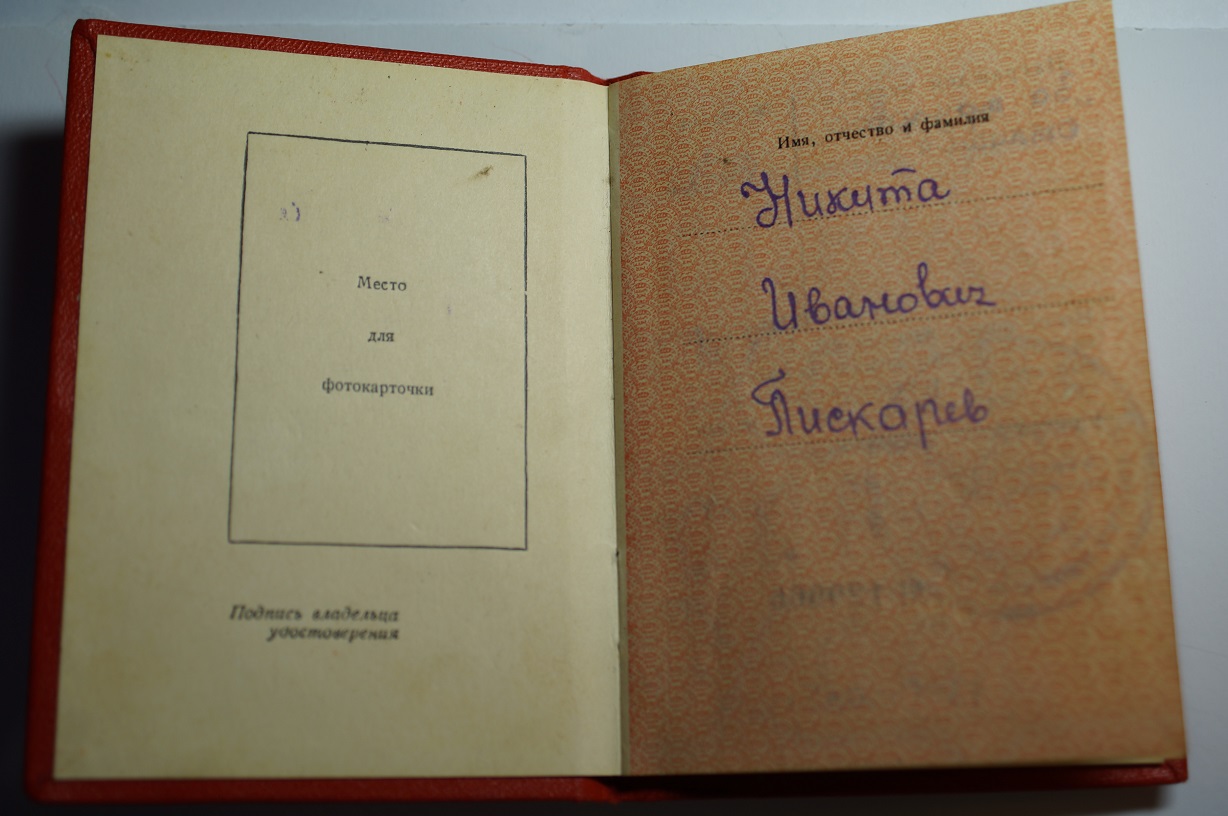 Место
для
фотокарточки
Подпись владельца
удостоверения
Имя, отчество и фамилия
Никита
Иванович
Пискарев